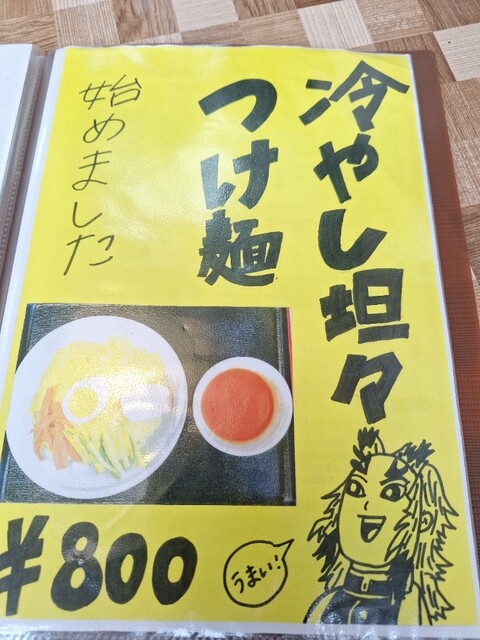 冷やし坦々
つけ麺
始めました
¥800
うまい!